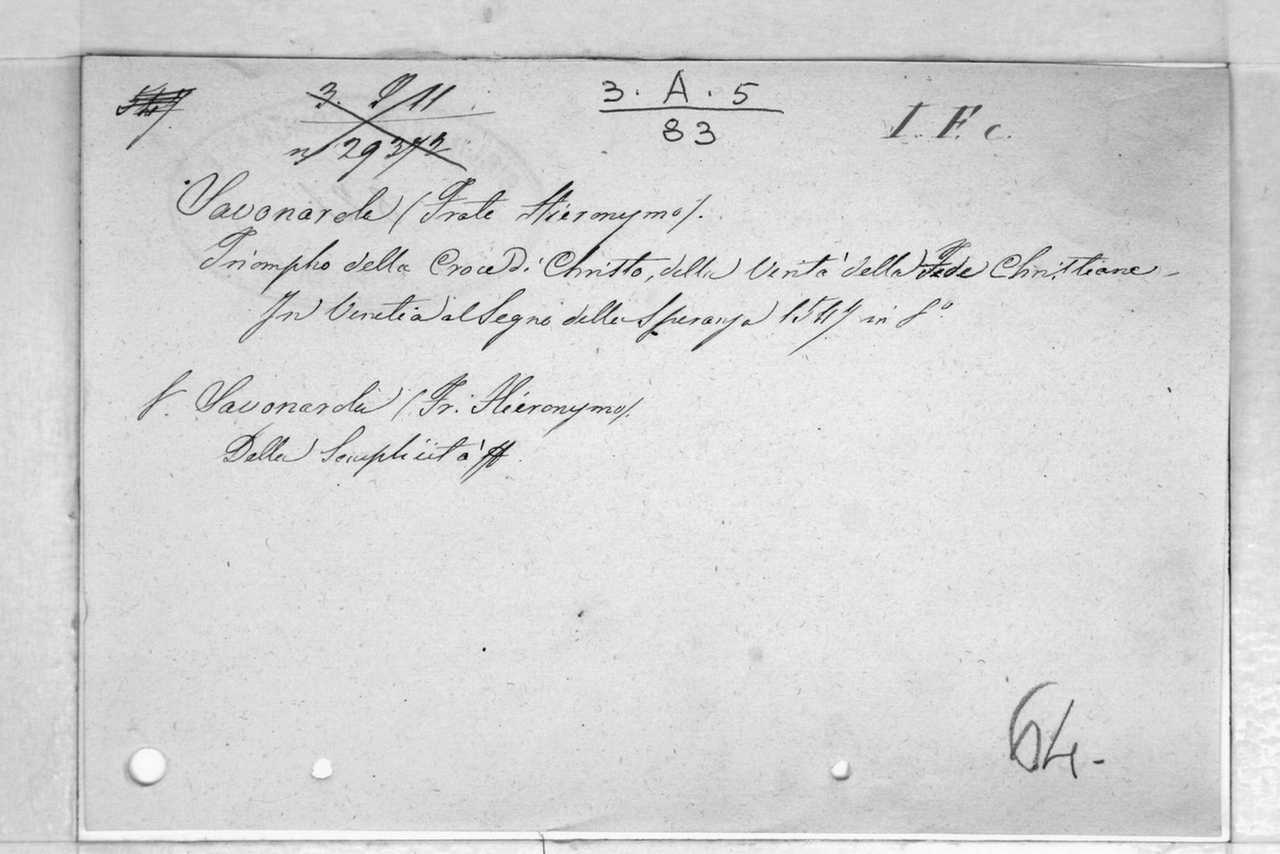 3. A. 5
83
I. F. c.
Savonarola (Frate Hieronymo).
Triompho della Croce Di Christo, della Verità della Fede Christiana -
In Venetia al Segno della Speranza 1547 in 8°.
f. Savonarola (Fr. Hieronymo).
Della Semplicità
64.-